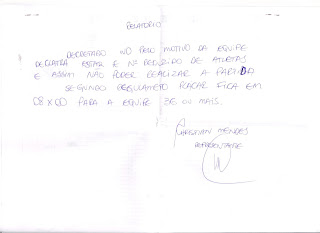 RELATORIO
DECRETADO WO PELO MOTIVO DA EQUIPE
ESTAR C Nº REDUZIDO DE ATLETAS
E ASSIM NÃO PODER REALIZAR A PARTIDA
SEGUNDO REGULAMENTO PLACAR FICA EM
08 X 00 PARA A EQUIPE 3E OU MAIS.
CHRISTIAN MENDES
REPRESENTANTE